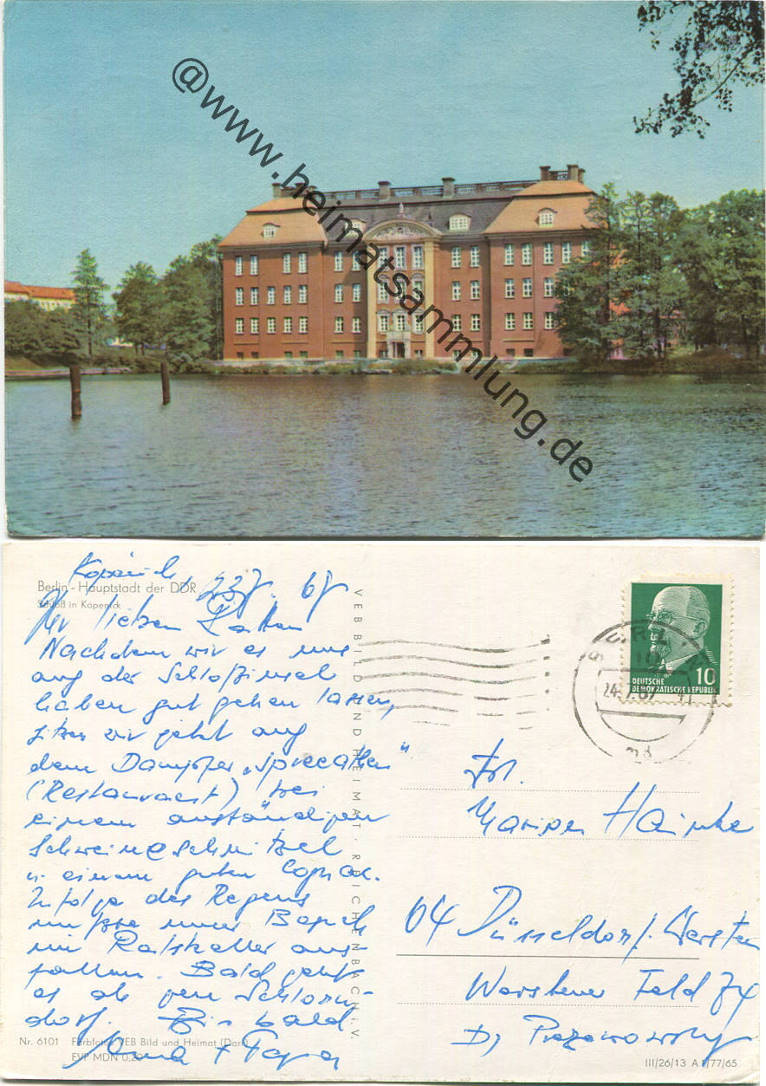 @www.heimatsammlung.de
Berlin - Hauptstadt der DDR
Schloß in Köpenick
Köpenick, 23.7.67
Ihr lieben
Nachdem wir es uns
auf der Schloßinsel
haben gut gehen lassen,
sitzen wir jetzt auf
dem Dampfer „Spreeathen"
(Restaurant) bei
einem anständigen
Schweineschnitzel
u. einem guten Cognac.
Infolge des Regens
mußte unser Besuch
im Ratskeller aus-
fallen. Bald geht
es ab gen
dorf. Bis bald
VEB BILD UND HEIMAT · REICHENBACH i. V.
DEUTSCHE
DEMOKRATISCHE REPUBLIK
10
BERLIN
24.7.67
Frl.
04 Düsseldorf-Wersten
Werstener Feld 74
Nr. 6101 Farbfoto: VEB Bild und Heimat (Darr)
EVP MDN 0,20
III/26/13 A 1/77/65